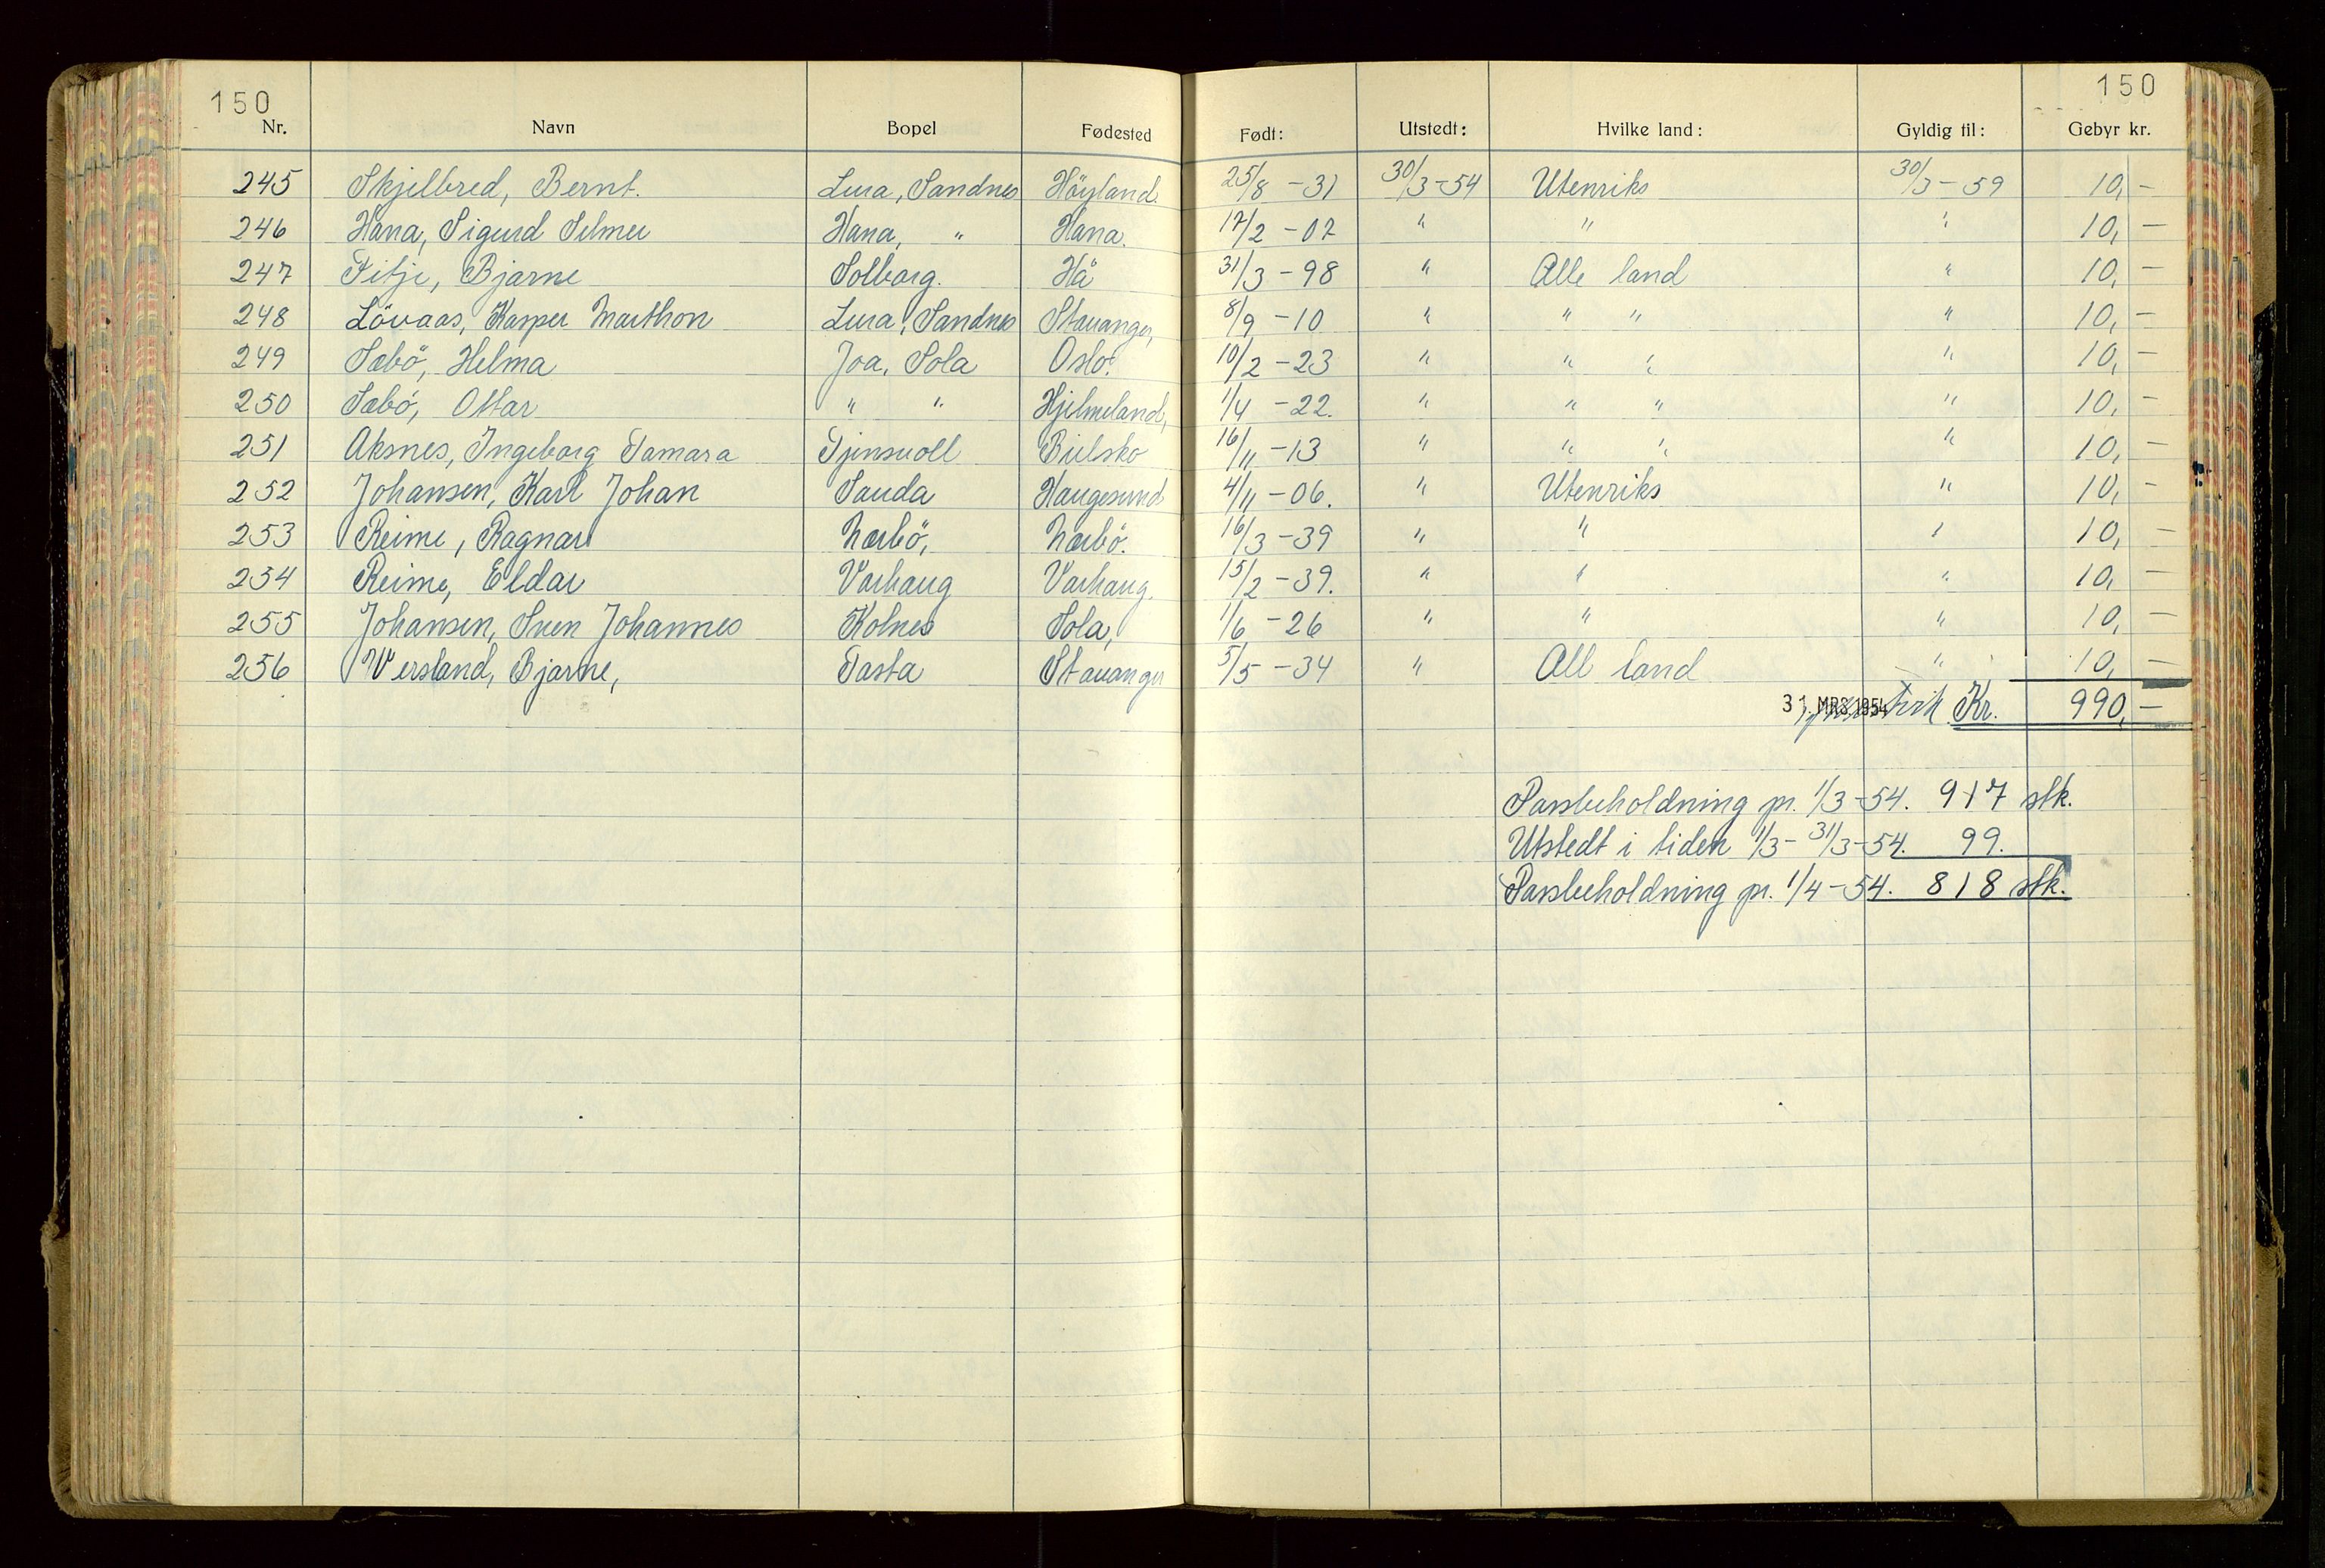 150 150
Nr. Navn Bopel Fødested Født: Utstedt: Hvilke land: Gyldig til: Gebyr kr.
245 Skjelbred, Bernt. Lura, Sandnes Höyland. 25/8 -31 30/3-54 Utenriks 30/3-59 10,-
246 Hana, Sigurd Selmer Hana, " Hana. 17/2 -07 " " " 10,-
247 Fitje, Bjarne Solborg. Hå 31/3 -98 " Alle land " 10,-
248 Lövaas, Kasper Marthon Lura, Sandnes Stavanger, 8/9 -10 " " " " 10,-
249 Sæbö, Helma Joa, Sola Oslo. 10/2 -23 " " " " 10,-
250 Sæbö, Ottar " " Hjelmeland, 1/4 -22. " " " " 10,-
251 Aksnes, Ingeborg Tamara Tjensvoll Bielsko 16/11 -13 " " " " 10,-
252 Johansen, Karl Johan Sauda Haugesund 4/11 -06. " Utenriks " 10,-
253 Reime, Ragnar Nærbö, Nærbö. 16/3 -39 " " " 10,-
254 Reime, Eldar Varhaug Varhaug. 15/2 -39. " " " 10,-
255 Johansen, Sven Johannes Kolnes Sola, 1/6 -26 " " " 10,-
256 Wersland, Bjarne, Tasta Stavanger 5/5 -34 " All land " 10,-
31. MRS. 1954 Kr. 990,-
Passbeholdning pr. 1/3-54. 917 stk.
Utstedt i tiden 1/3- 31/3-54. 99.
Passbeholdning pr. 1/4-54. 818 stk.